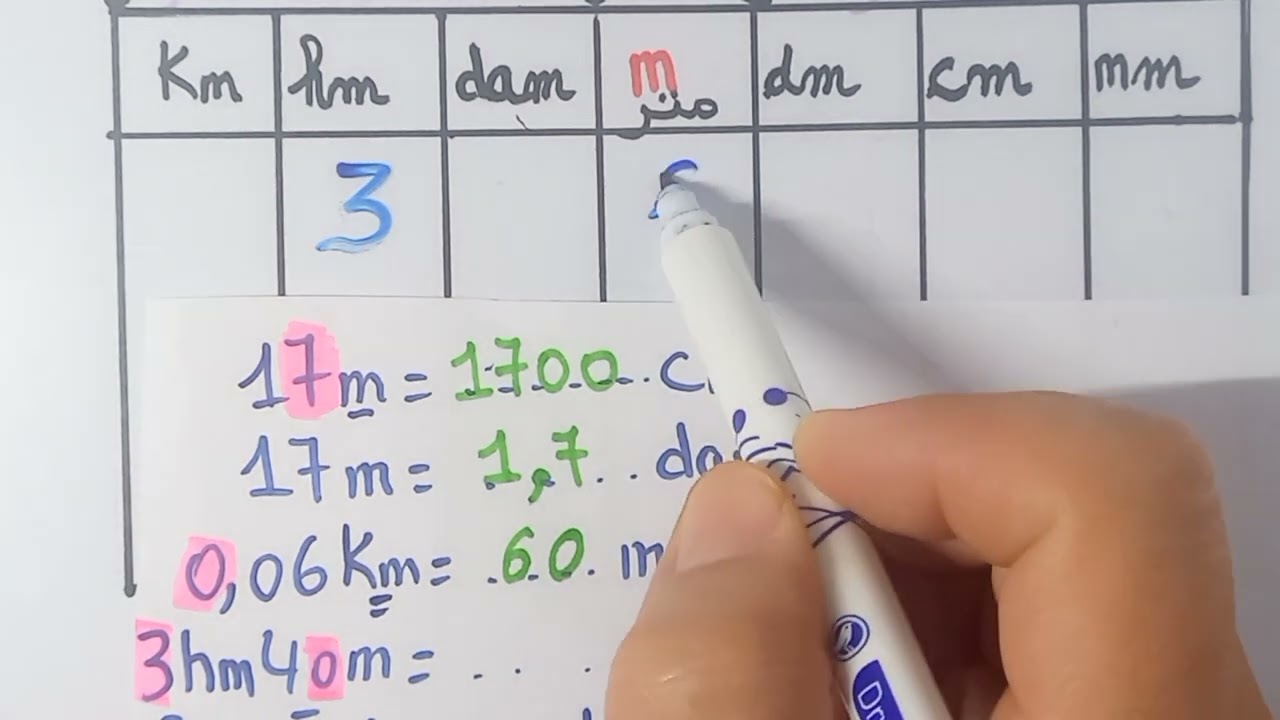 Km hm dam m dm cm mm
متر
3
17m = 1700 c
17m = 1,7 da
0,06 Km = 60 m
3hm 40m = . .
Dr